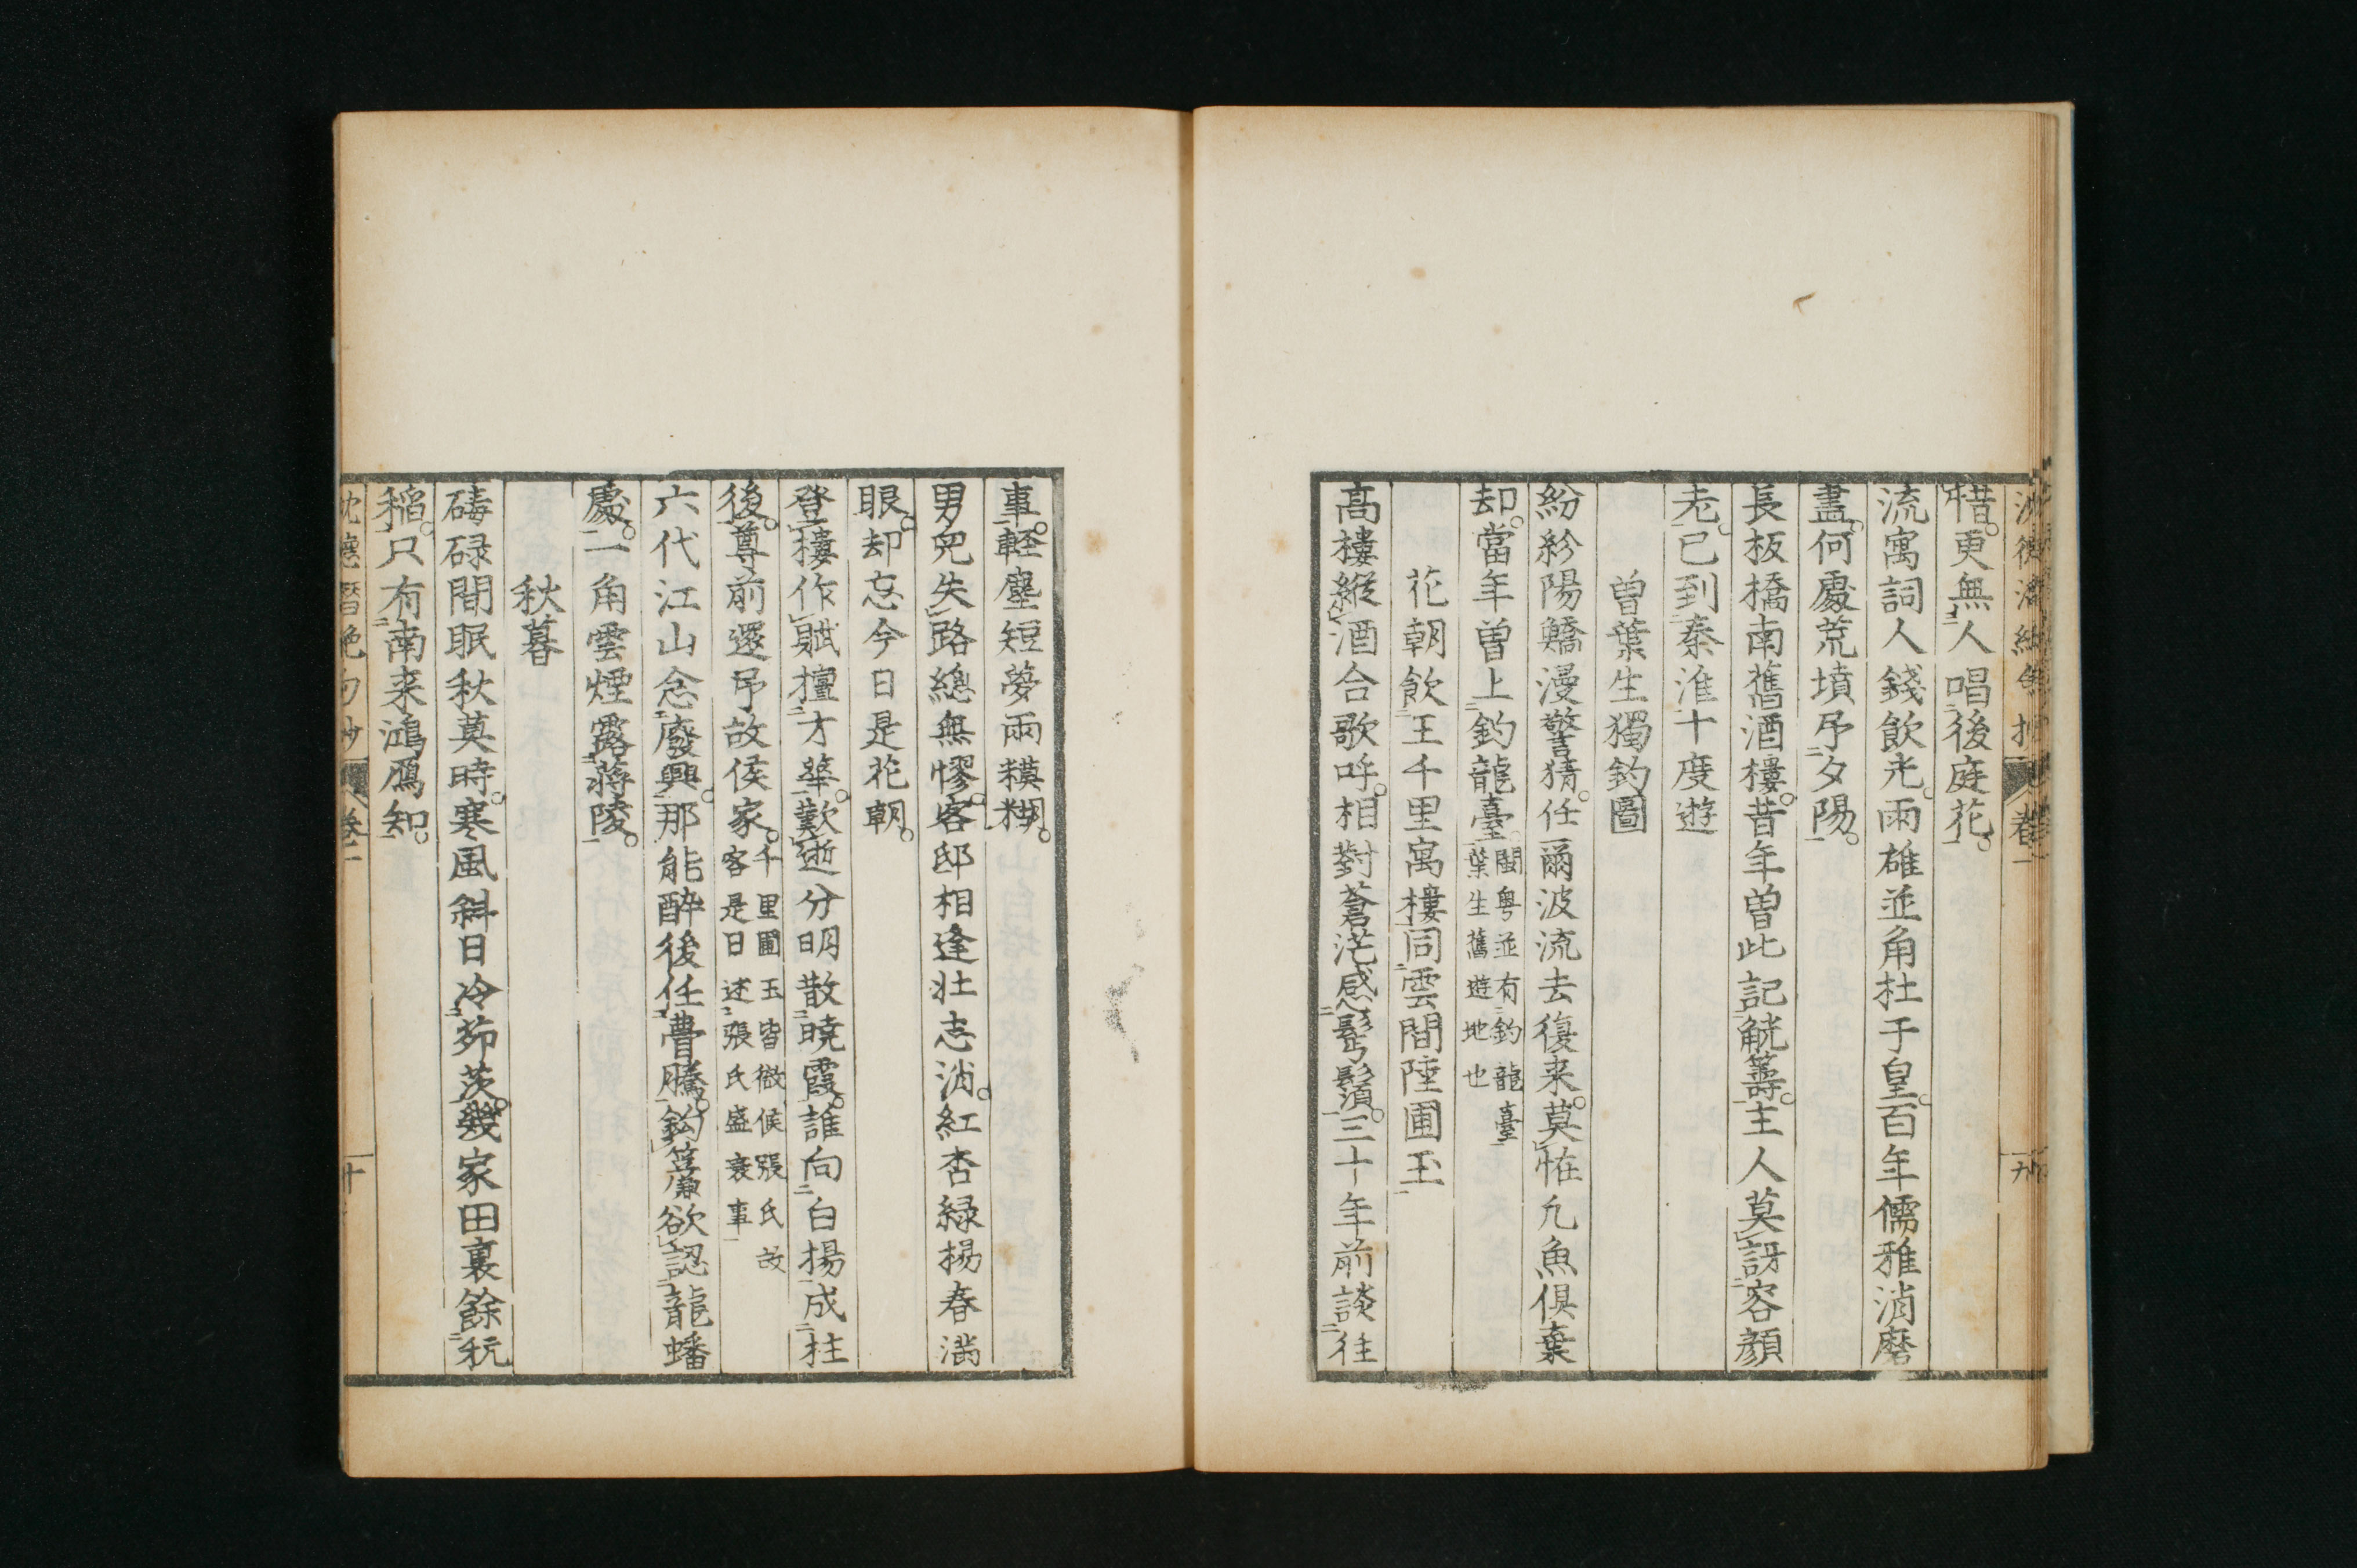 惜更無人唱後庭花
流寓詞人錢飲光雨雄並角杜于皇百年儒雅消磨
盡何處荒墳弔夕陽
長板橋南舊酒樓昔年曽此記觥籌主人莫訝客顔
老已到秦淮十度遊
曽葉生獨釣圖
紛紛陽鱎漫驚猜任爾波流去復来莫恠凢魚俱棄
却當年曽上釣龍臺閩粤並有釣龍臺
葉生舊遊地也
花朝飲王千里寓樓同雲間陸圃玉
髙樓縱酒合歌呼相對蒼茫感髩鬚三十年前談徃
事軽塵短夢雨糢糊
男兒失路緫無憀客邸相逢壮志消紅杏緑楊春滿
眼却忘今日是花朝
登樓作賦擅才華歎逝分明散曉霞誰向白楊成拄
後尊前還弔故侯家千里圃玉皆徽侯張氏故
客是日述張氏盛衰事
六代江山念廢興那能醉後任瞢騰鈎簾欲認龍蟠
處一角雲煙露蒋陵
秋暮
碡碌間眠秋莫時寒風斜日冷茆茨幾家田裏餘秔
稲只有南来鴻鴈知
沈德潛絶句抄 卷一 九
沈德潜絶句抄 卷二 十